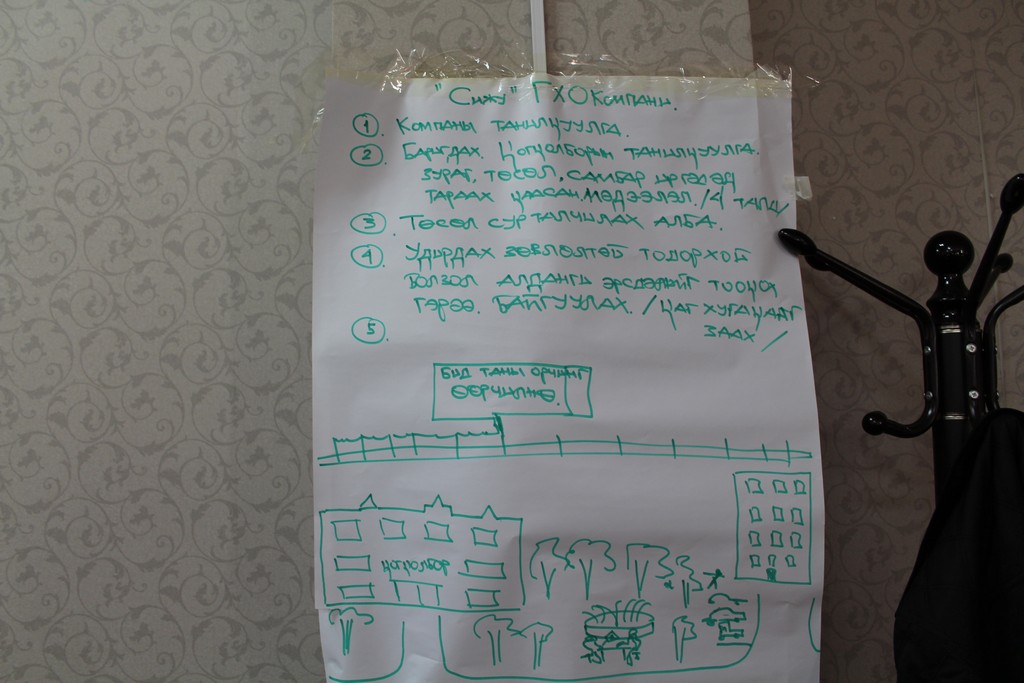 "Сижу" ГХО Компани.
① Компаны танилцуулга.
② Баригдах. Цогцолборын танилцуулга.
зураг, төсөл, самбар иргэдэд
тараах цаасан. мэдээлэл. /4 талц/
③ Төсөл сурталчилах алба.
④ Удирдах зөвлөлтэй тодорхой
болзол алданги эрсдэлийг тооцож
гэрээ. байгуулах. /цаг хугацааг
заах/
⑤
Бид таны орчинг
өөрчилжө.
цогцолбор